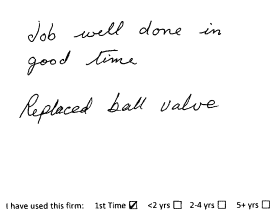 Job well done in
good time
Replaced ball valve
I have used this firm: 1st Time ☑ <2 yrs ☐ 2-4 yrs ☐ 5+ yrs ☐